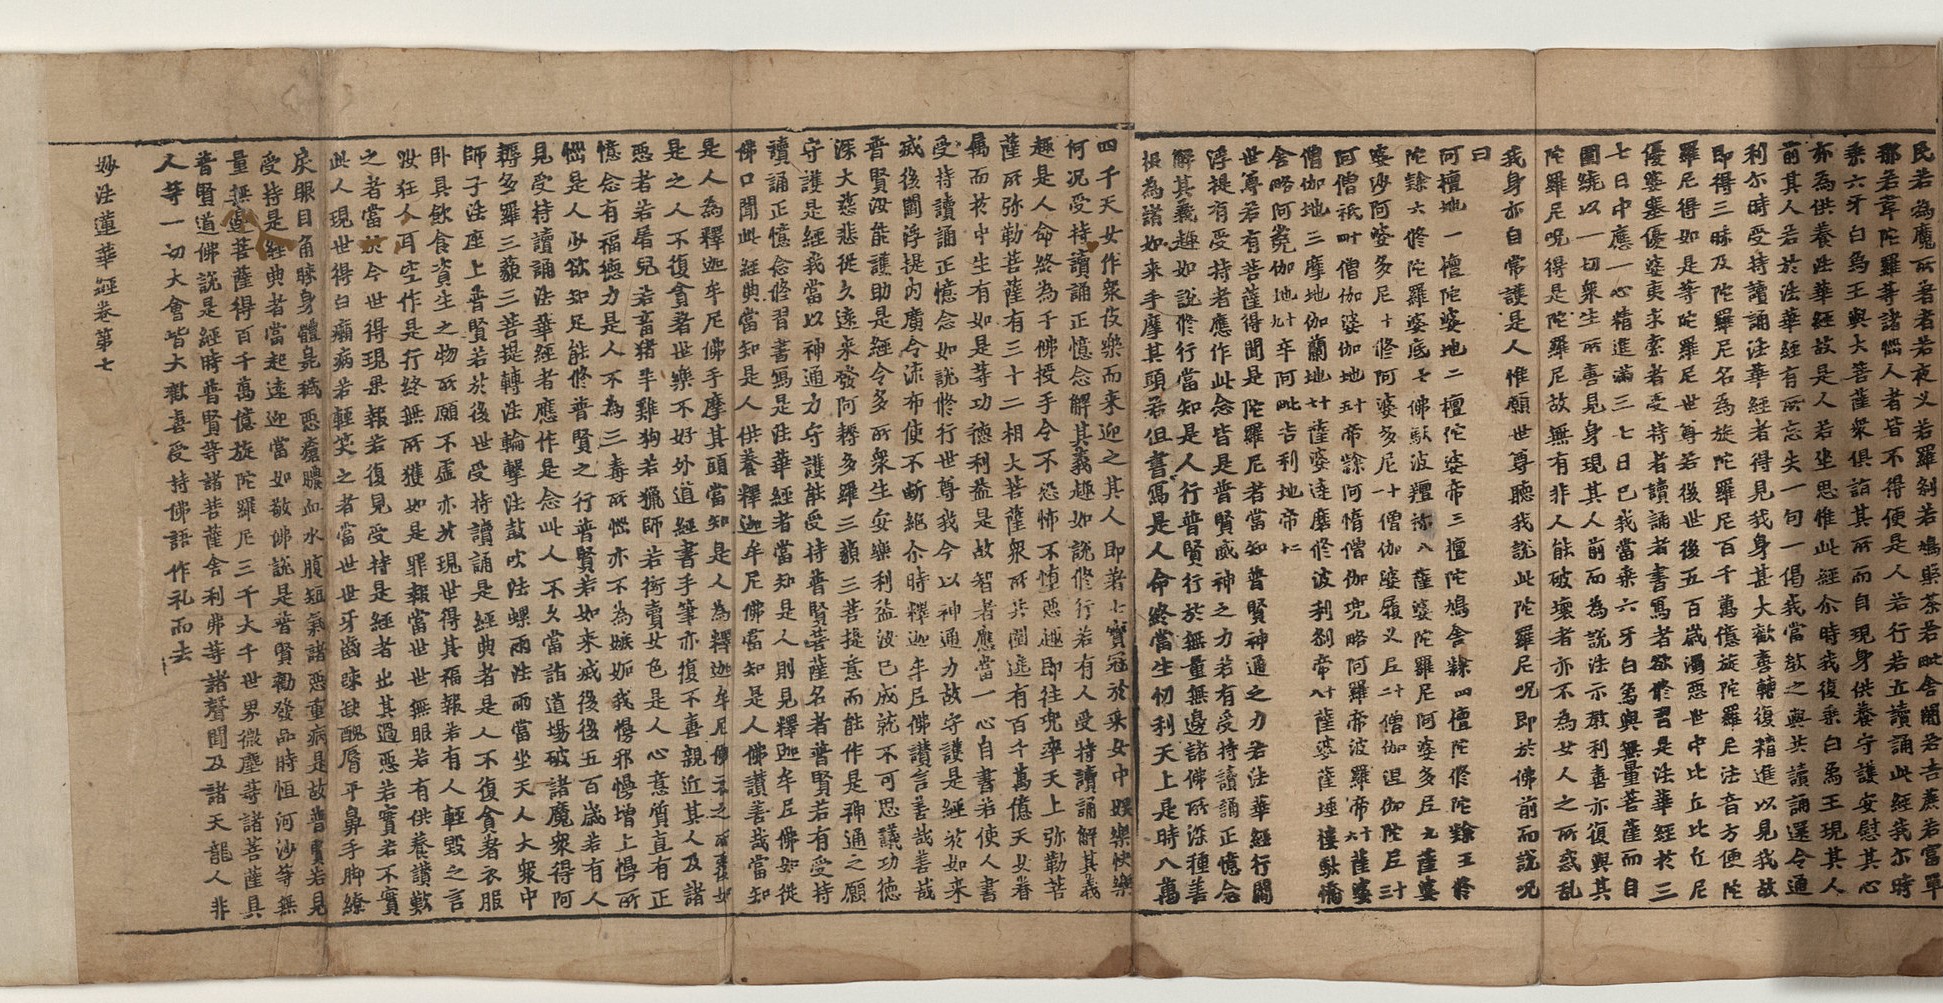 民若為魔所著者若夜叉若羅刹若鳩槃荼若毗舍闍若吉蔗若富單
那若韋陀羅等諸惱人者皆不得便是人若行若立讀誦此經我尒時
乘六牙白象王與大菩薩衆俱詣其所而自現身供養守護安慰其心
亦為供養法華經故是人若坐思惟此經尒時我復乘白象王現其人
前其人若於法華經有所忘失一句一偈我當教之與共讀誦還令通
利尒時受持讀誦法華經者得見我身甚大歡喜轉復精進以見我故
即得三昧及陀羅尼名為旋陀羅尼百千萬億旋陀羅尼法音方便陀
羅尼得如是等陀羅尼世尊若後世後五百歲濁惡世中比丘比丘尼
優婆塞優婆夷求索者受持者讀誦者書寫者欲修習是法華經於三
七日中應一心精進滿三七日已我當乘六牙白象與無量菩薩而自
圍繞以一切衆生所喜見身現其人前而為說法示教利喜亦復與其
陀羅尼呪得是陀羅尼故無有非人能破壞者亦不為女人之所惑亂
我身亦自常護是人惟願世尊聽我說此陀羅尼呪即於佛前而說呪
曰
阿檀地一檀陀婆地二檀陀婆帝三檀陀鳩舍隸四檀陀修陀隸五修
陀隸六修陀羅婆底七佛馱波羶祢八薩婆陀羅尼阿婆多尼九薩婆
婆沙阿婆多尼十修阿婆多尼十僧伽婆履叉尼二十僧伽涅伽陀尼三十
阿僧祇四十僧伽婆伽地五十帝隸阿惰僧伽兜略阿羅帝波羅帝六十薩婆
僧伽地三摩地伽蘭地七十薩婆達磨修波利刹帝八十薩婆薩埵樓馱憍
舍略阿㝹伽地九十辛阿毗吉利地帝二十
世尊若有菩薩得聞是陀羅尼者當知普賢神通之力若法華經行閻
浮提有受持者應作此念皆是普賢威神之力若有受持讀誦正憶念
解其義趣如說修行當知是人行普賢行於無量無邊諸佛所深種善
根為諸如来手摩其頭若但書寫是人命終當生忉利天上是時八萬
四千天女作衆伎樂而来迎之其人即著七寶冠於采女中娛樂快樂
何況受持讀誦正憶念解其義趣如說修行若有人受持讀誦解其義
趣是人命終為千佛授手令不恐怖不墮惡趣即往兜率天上弥勒菩
薩所弥勒菩薩有三十二相大菩薩衆所共圍遶有百千萬億天女眷
屬而於中生有如是等功德利益是故智者應當一心自書若使人書
受持讀誦正憶念如說修行世尊我今以神通力故守護是經於如来
滅後閻浮提內廣令流布使不斷絕尒時釋迦牟尼佛讚言善哉善哉
普賢汝能護助是經令多所衆生安樂利益汝已成就不可思議功德
深大慈悲從久遠来發阿耨多羅三藐三菩提意而能作是神通之願
守護是經我當以神通力守護能受持普賢菩薩名者普賢若有受持
讀誦正憶念修習書寫是法華經者當知是人則見釋迦牟尼佛如從
佛口聞此經典當知是人供養釋迦牟尼佛當知是人佛讚善哉當知
是人為釋迦牟尼佛手摩其頭當知是人為釋迦牟尼佛衣之所覆如
是之人不復貪著世樂不好外道經書手筆亦復不喜親近其人及諸
惡者若屠兒若畜猪羊雞狗若獵師若衒賣女色是人心意質直有正
憶念有福德力是人不為三毒所惱亦不為嫉妬我慢邪慢增上慢所
惱是人少欲知足能修普賢之行普賢若如来滅後後五百歲若有人
見受持讀誦法華經者應作是念此人不久當詣道場破諸魔衆得阿
耨多羅三藐三菩提轉法輪擊法鼓吹法螺雨法雨當坐天人大衆中
師子法座上普賢若於後世受持讀誦是經典者是人不復貪著衣服
卧具飲食資生之物所願不虛亦於現世得其福報若有人輕毀之言
汝狂人耳空作是行終無所獲如是罪報當世世無眼若有供養讚歎
之者當於今世得現果報若復見受持是經者出其過惡若實若不實
此人現世得白癩病若輕笑之者當世世牙齒疎缺醜脣平鼻手脚繚
戾眼目角睞身體臭穢惡瘡膿血水腹短氣諸惡重病是故普賢若見
受持是經典者當起遠迎當如敬佛說是普賢勸發品時恒河沙等無
量無邊菩薩得百千萬億旋陀羅尼三千大千世界微塵等諸菩薩具
普賢道佛說是經時普賢等諸菩薩舍利弗等諸聲聞及諸天龍人非
人等一切大會皆大歡喜受持佛語作礼而去
妙法蓮華經卷第七